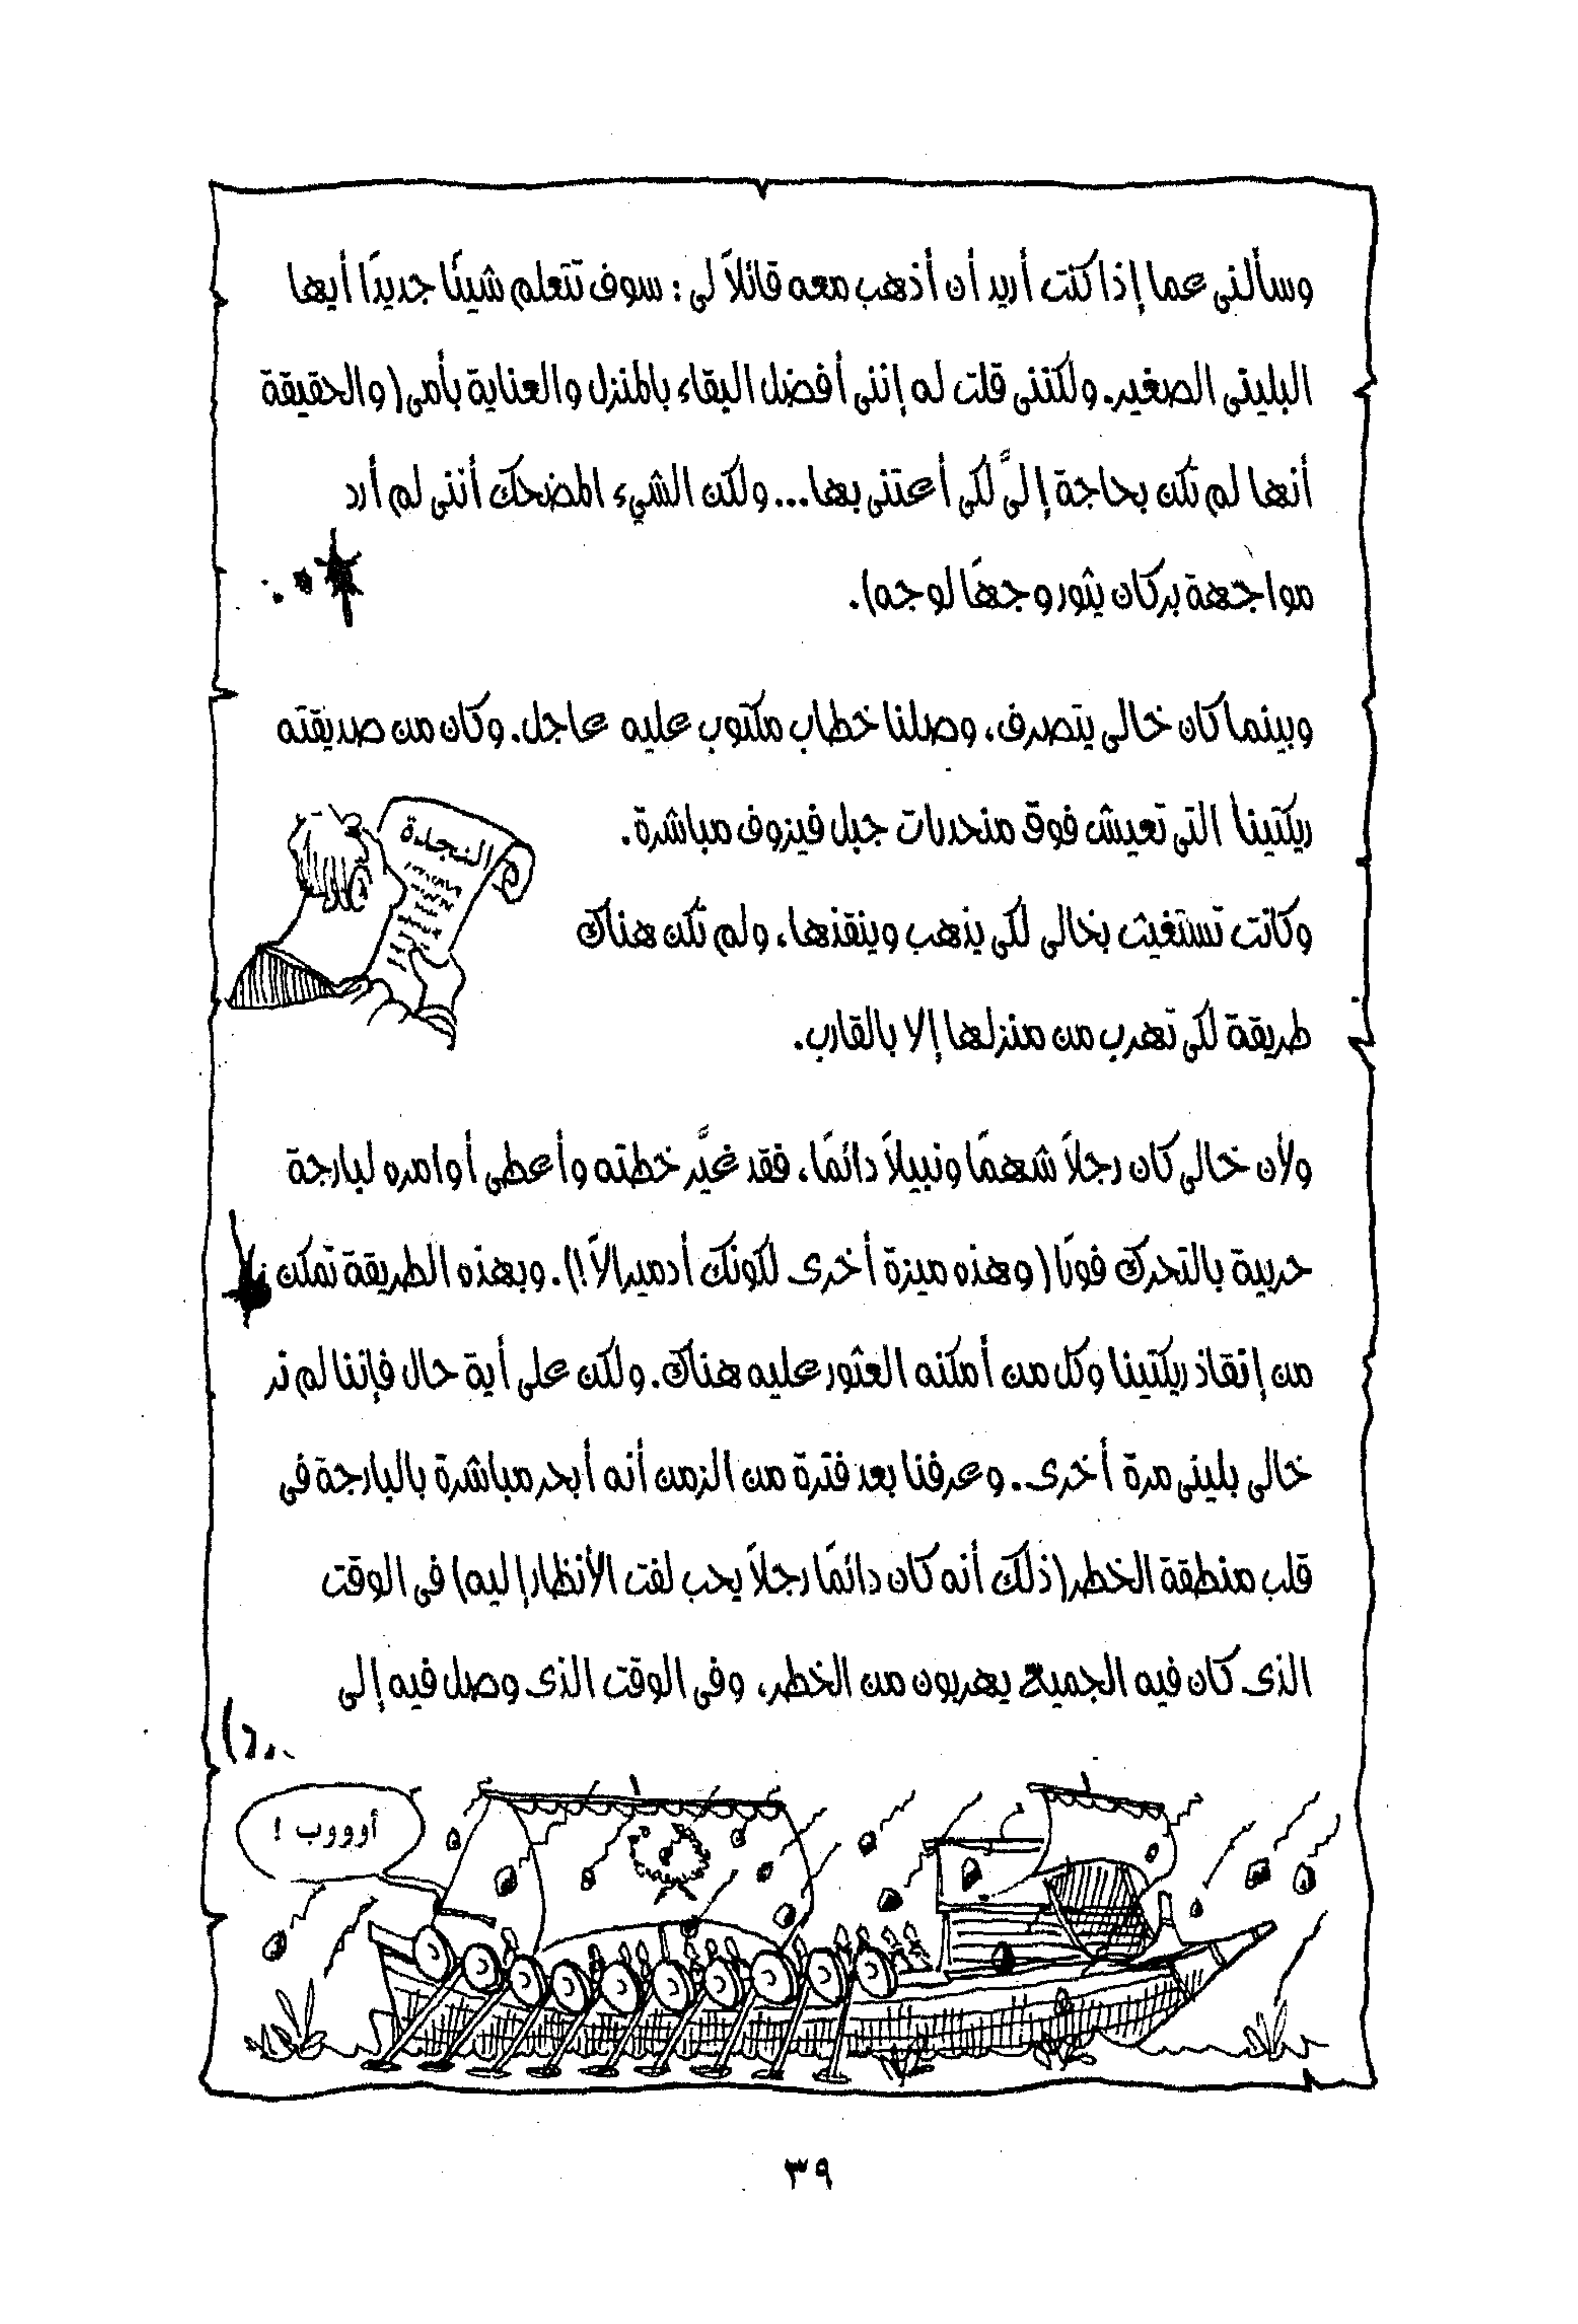 وسألنى عما إذا كنت أريد أن أذهب معه قائلاً لى: سوف تتعلم شيئًا جديدًا أيها
البلينى الصغير. ولكننى قلت له إننى أفضل البقاء بالمنزل والعناية بأمى (والحقيقة
أنها لم تكن بحاجة إلىَّ لكى أعتنى بها... ولكن الشيء المضحك أننى لم أرد
مواجهة بركان يثور وجهًا لوجه).
وبينما كان خالى يتصرف، وصلنا خطاب مكتوب عليه عاجل. وكان من صديقته
ريكتينا التى تعيش فوق منحدرات جبل فيزوف مباشرة.
النجدة
وكانت تستغيث بخالى لكى يذهب وينقذها، ولم تكن هناك
طريقة لكى تهرب من منزلها إلا بالقارب.
ولأن خالى كان رجلاً شهمًا ونبيلاً دائمًا، فقد غيَّر خطته وأعطى أوامره لبارجة
حربية بالتحرك فورًا (وهذه ميزة أخرى لكونك أدميرالاً!). وبهذه الطريقة تمكن
من إنقاذ ريكتينا وكل من أمكنه العثور عليه هناك. ولكن على أية حال فإننا لم نر
خالى بلينى مرة أخرى. وعرفنا بعد فترة من الزمن أنه أبحر مباشرة بالبارجة فى
قلب منطقة الخطر (ذلك أنه كان دائمًا رجلاً يحب لفت الأنظار إليه) فى الوقت
الذى كان فيه الجميع يهربون من الخطر، وفى الوقت الذى وصل فيه إلى
أوووب !
٣٩